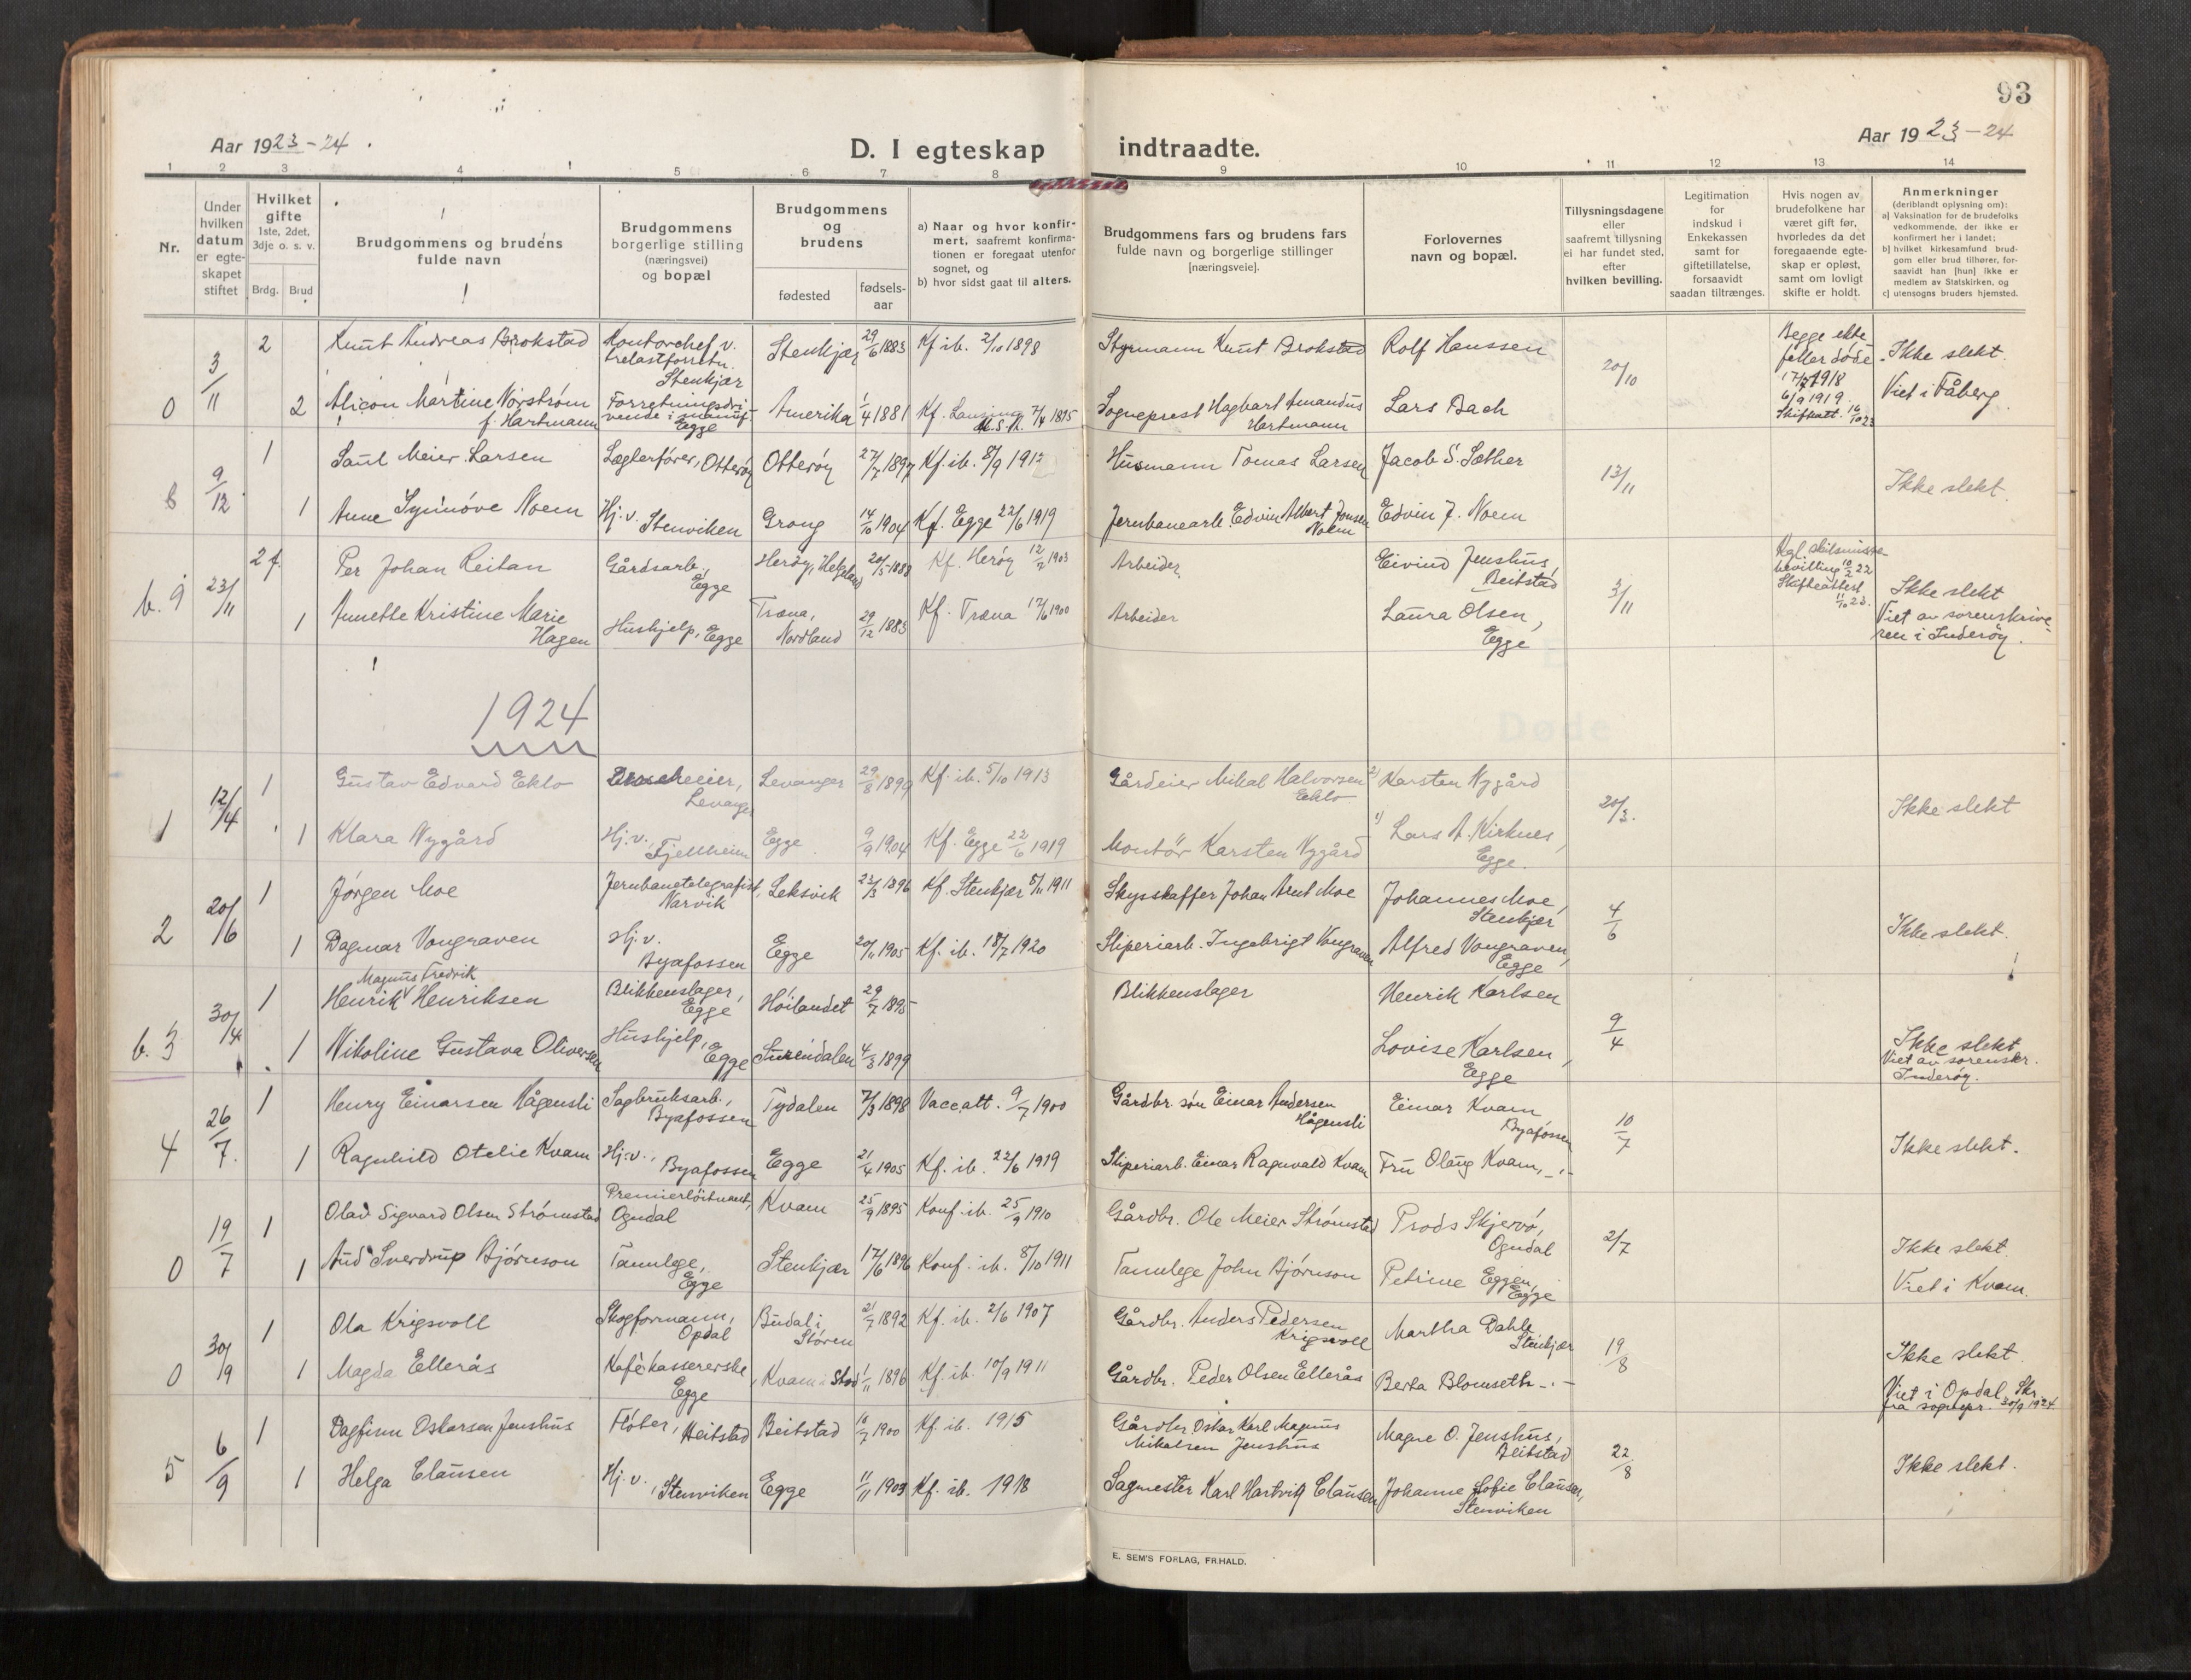 93
Aar 1923-24
D. I egteskap indtraadte.
Aar 1923-24
1 2 3 4 5 6 7 8 9 10 11 12 13 14
Nr.
Under hvilken datum er egteskapet stiftet
Hvilket gifte 1ste, 2det, 3dje o. s. v.
Brdg. Brud
Brudgommens og brudens fulde navn
Brudgommens borgerlige stilling (næringsvei) og bopæl
Brudgommens og brudens
fødested
fødselsaar
a) Naar og hvor konfirmert, saafremt konfirmationen er foregaat utenfor sognet, og
b) hvor sidst gaat til alters.
Brudgommens fars og brudens fars fulde navn og borgerlige stillinger [næringsveie].
Forlovernes navn og bopæl.
Tillysningsdagene eller saafremt tillysning ei har fundet sted, efter hvilken bevilling.
Legitimation for indskud i Enkekassen samt for giftetillatelse, forsaavidt saadan tiltrænges.
Hvis nogen av brudefolkene har været gift før, hvorledes da det foregaaende egteskap er opløst, samt om lovligt skifte er holdt.
Anmerkninger (deriblandt oplysning om):
a] Vaksination for de brudefolks vedkommende, der ikke er konfirmert her i landet;
b] hvilket kirkesamfund brudgom eller brud tilhører, forsaavidt han [hun] ikke er medlem av Statskirken, og
c] utensogns bruders hjemsted.
0 3/11 2 Knut Andreas Brokstad Kontorchef v. trelastforretn. Stenkjær Stenkjær 29/6 1883 Kf. ib. 2/10 1898 Styrmann Knut Brokstad Rolf Hanssen 20/10 Begge ektefeller døde 17/7 1918 6/9 1919. Skifteatt. 16/10 23 Ikke slekt. Viet i Fåberg
2 Alicon Martine Norstrøm f. Hartmann Forretningsdrivende i manuf. Egge Amerika 1/4 1881 Kf. Lansing U.S.A. 7/4 1895 Sogneprest Hagbart Amandus Hartmann Lars Bach
6 9/12 1 Saul Meier Larsen Løgterfører, Otterøy Otterøy 27/7 1897 Kf. ib. 8/9 1912 Husmann Tomas Larsen Jacob S. Sæther 13/11 Ikke slekt.
1 Anne Synnøve Noem Hj. v. Stenviken Grong 14/10 1904 Kf. Egge 22/6 1919 Jernbanearb. Edvin Albert Jonsen Noem Edvin J. Noem
b. 9 23/11 2 f. Per Johan Reitan Gårdsarb., Egge Herøy, Helgeland 20/5 1888 Kf. Herøy 12/7 1903 Arbeider Eivind Jenshus, Beitstad 3/11 Kgl. skilsmissebevilling 10/2 22 Skifteattest 11/10 23. Ikke slekt Viet av sorenskriveren i Inderøy.
1 Annette Kristine Marie Hagen Hushjelp, Egge Træna, Nordland 29/12 1883 Kf. Træna 17/6 1900 Arbeider Laura Olsen, Egge
1924
1 12/4 1 Gustav Edvard Eklo Levanger Levanger 29/8 1899 Kf. ib. 5/10 1913 Gårdeier Mikal Halvorsen Eklo 2) Karsten Nygård 20/3. Ikke slekt
1 Klara Nygård Hj. v., Fjellheim Egge 9/9 1904 Kf. Egge 22/6 1919 Montör Karsten Nygård 1) Lars A. Kirknes, Egge.
2 20/6 1 Jørgen Moe Jernbanetelegrafist, Narvik Leksvik 23/3 1896 Kf. Stenkjær 5/11 1911 Skysskaffer Johan Arnt Moe Johannes Moe, Stenkjær 4/6 Ikke slekt.
1 Dagmar Vongraven Hj. v. Byafossen Egge 20/11 1905 Kf. ib. 18/7 1920 Sliperiarb. Ingebrigt Vongraven Alfred Vongraven, Egge
b. 3 30/4 1 Henrik Magnus Fredrik Henriksen Blikkenslager, Egge Høilandet 29/7 1895 Blikkenslager Henrik Karlsen 9/4 Ikke slekt Viet av sorenskr. Inderøy.
1 Nikoline Gustava Oliversen Hushjelp, Egge Surendalen 4/3 1899 Lovise Karlsen, Egge
4 26/7. 1 Henry Einarsen Hågensli Sagbruksarb., Byafossen Tydalen 7/3 1898 Vacc.att. 9/7 1900 Gårdbr. søn Einar Andersen Hågensli Einar Kvam Byafossen 10/7 Ikke slekt.
1 Ragnhild Otelie Kvam Hj. v., Byafossen Egge 21/4 1905 Kf. ib. 22/6 1919 Sliperiarb. Einar Ragnvald Kvam Fru Olaug Kvam, -"-
0 19/7 1 Olav Sigvard Olsen Strømstad Premierløitnant, Ogndal Kvam 25/9 1895 Konf. ib. 25/9 1910 Gårdbr. Ole Meier Strømstad Prods Skjervø, Ogndal 2/7 Ikke slekt. Viet i Kvam.
1 Aud Sverdrup Bjørnson Tannlege, Egge Stenkjær 17/6 1896 Konf. ib. 8/10 1911 Tannlege John Bjørnson Petrine Eggen, Egge
0 30/9 1 Ola Krigsvoll Skogformann, Opdal Budal i Støren 21/7 1892 Kf. ib. 2/6 1907 Gårdbr. Anders Pedersen Krigsvoll Martha Dahle Stenkjær 19/8 Ikke slekt. Viet i Opdal. Skr. fra sognepr. 30/9 1924.
1 Magda Ellerås Kafékassererske, Egge Kvam i Stod 1/11 1896 Kf. ib. 10/9 1911 Gårdbr. Peder Olsen Ellerås Berta Blomseth -"-
5 6/9 1 Dagfinn Oskarsen Jenshus Fløter, Beitstad Beitstad 10/7 1900 Kf. ib. 1915 Gårdbr. Oskar Karl Magnus Mikalsen Jenshus Magne O. Jenshus, Beitstad 22/8 Ikke slekt.
1 Helga Clausen Hj. v., Stenviken Egge 11/11 1903 Kf. ib. 1918 Sagmester Karl Hartvig Clausen Johanne Sofie Clausen, Stenviken
E. SEM'S FORLAG, FR.HALD.